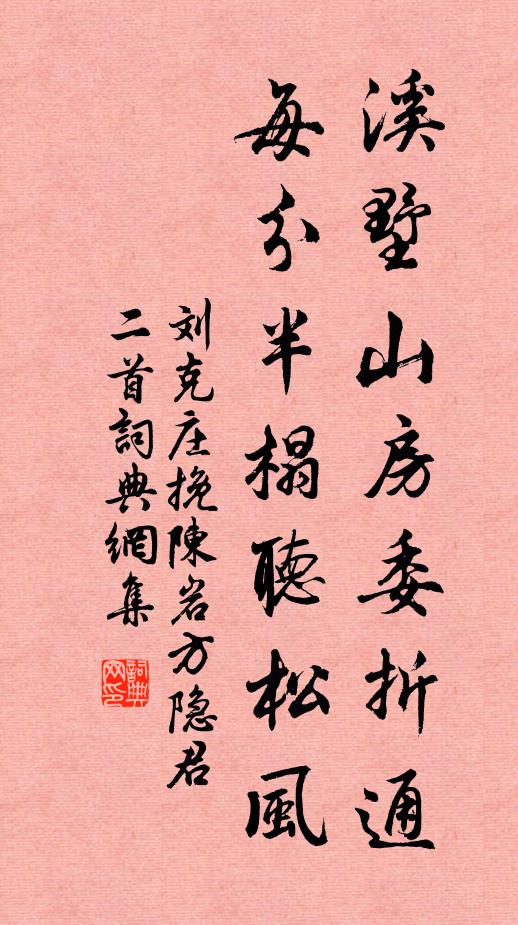 溪墅山房委折通
每分半榻聽松風
刘克庄挽陳岩方隐君
二首詞典網集
詞典
网印